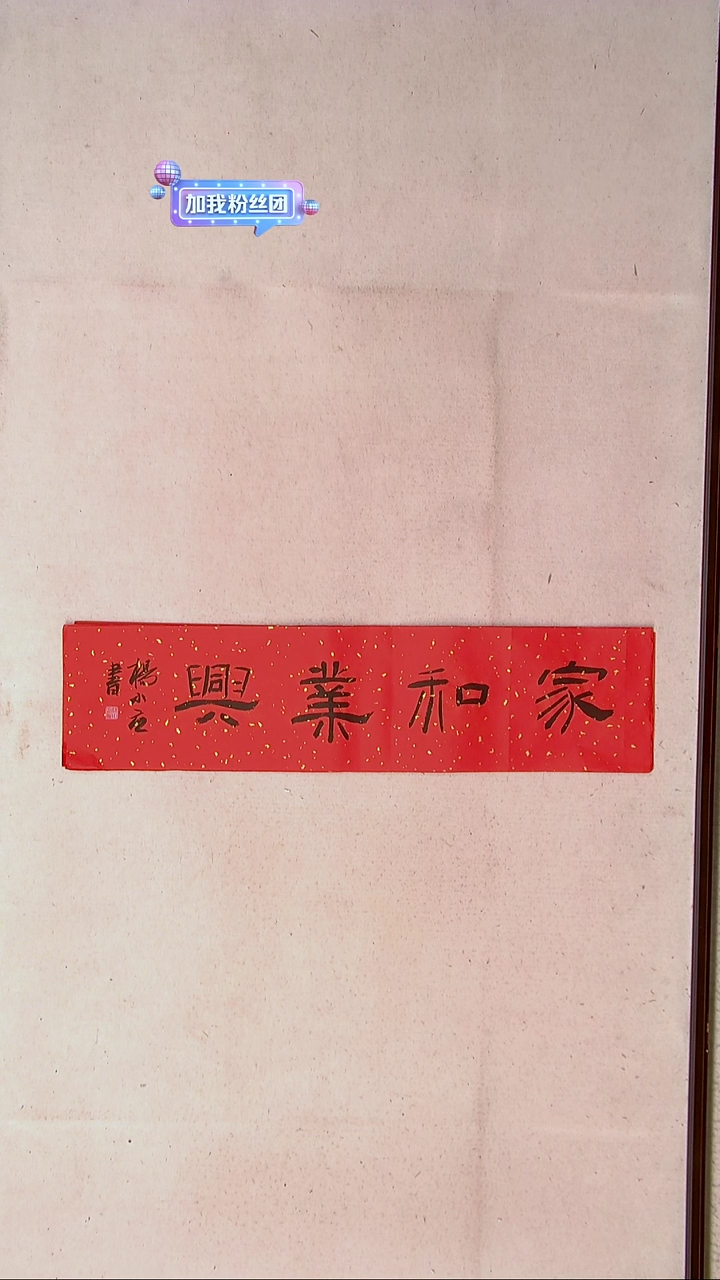 加我粉丝团
家和業興
楊小
書